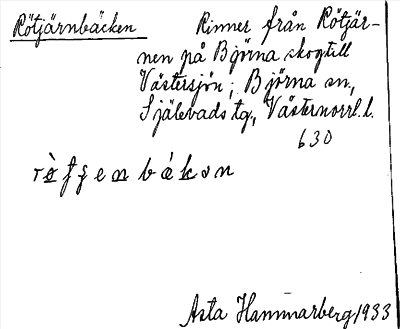 Rötjärnbäcken Rinner från Rötjär-
nen på Björna skog till
Västersjön; Björna sn,
Själevads tg, Västernorrl. l.
630
Asta Hammarberg 1933